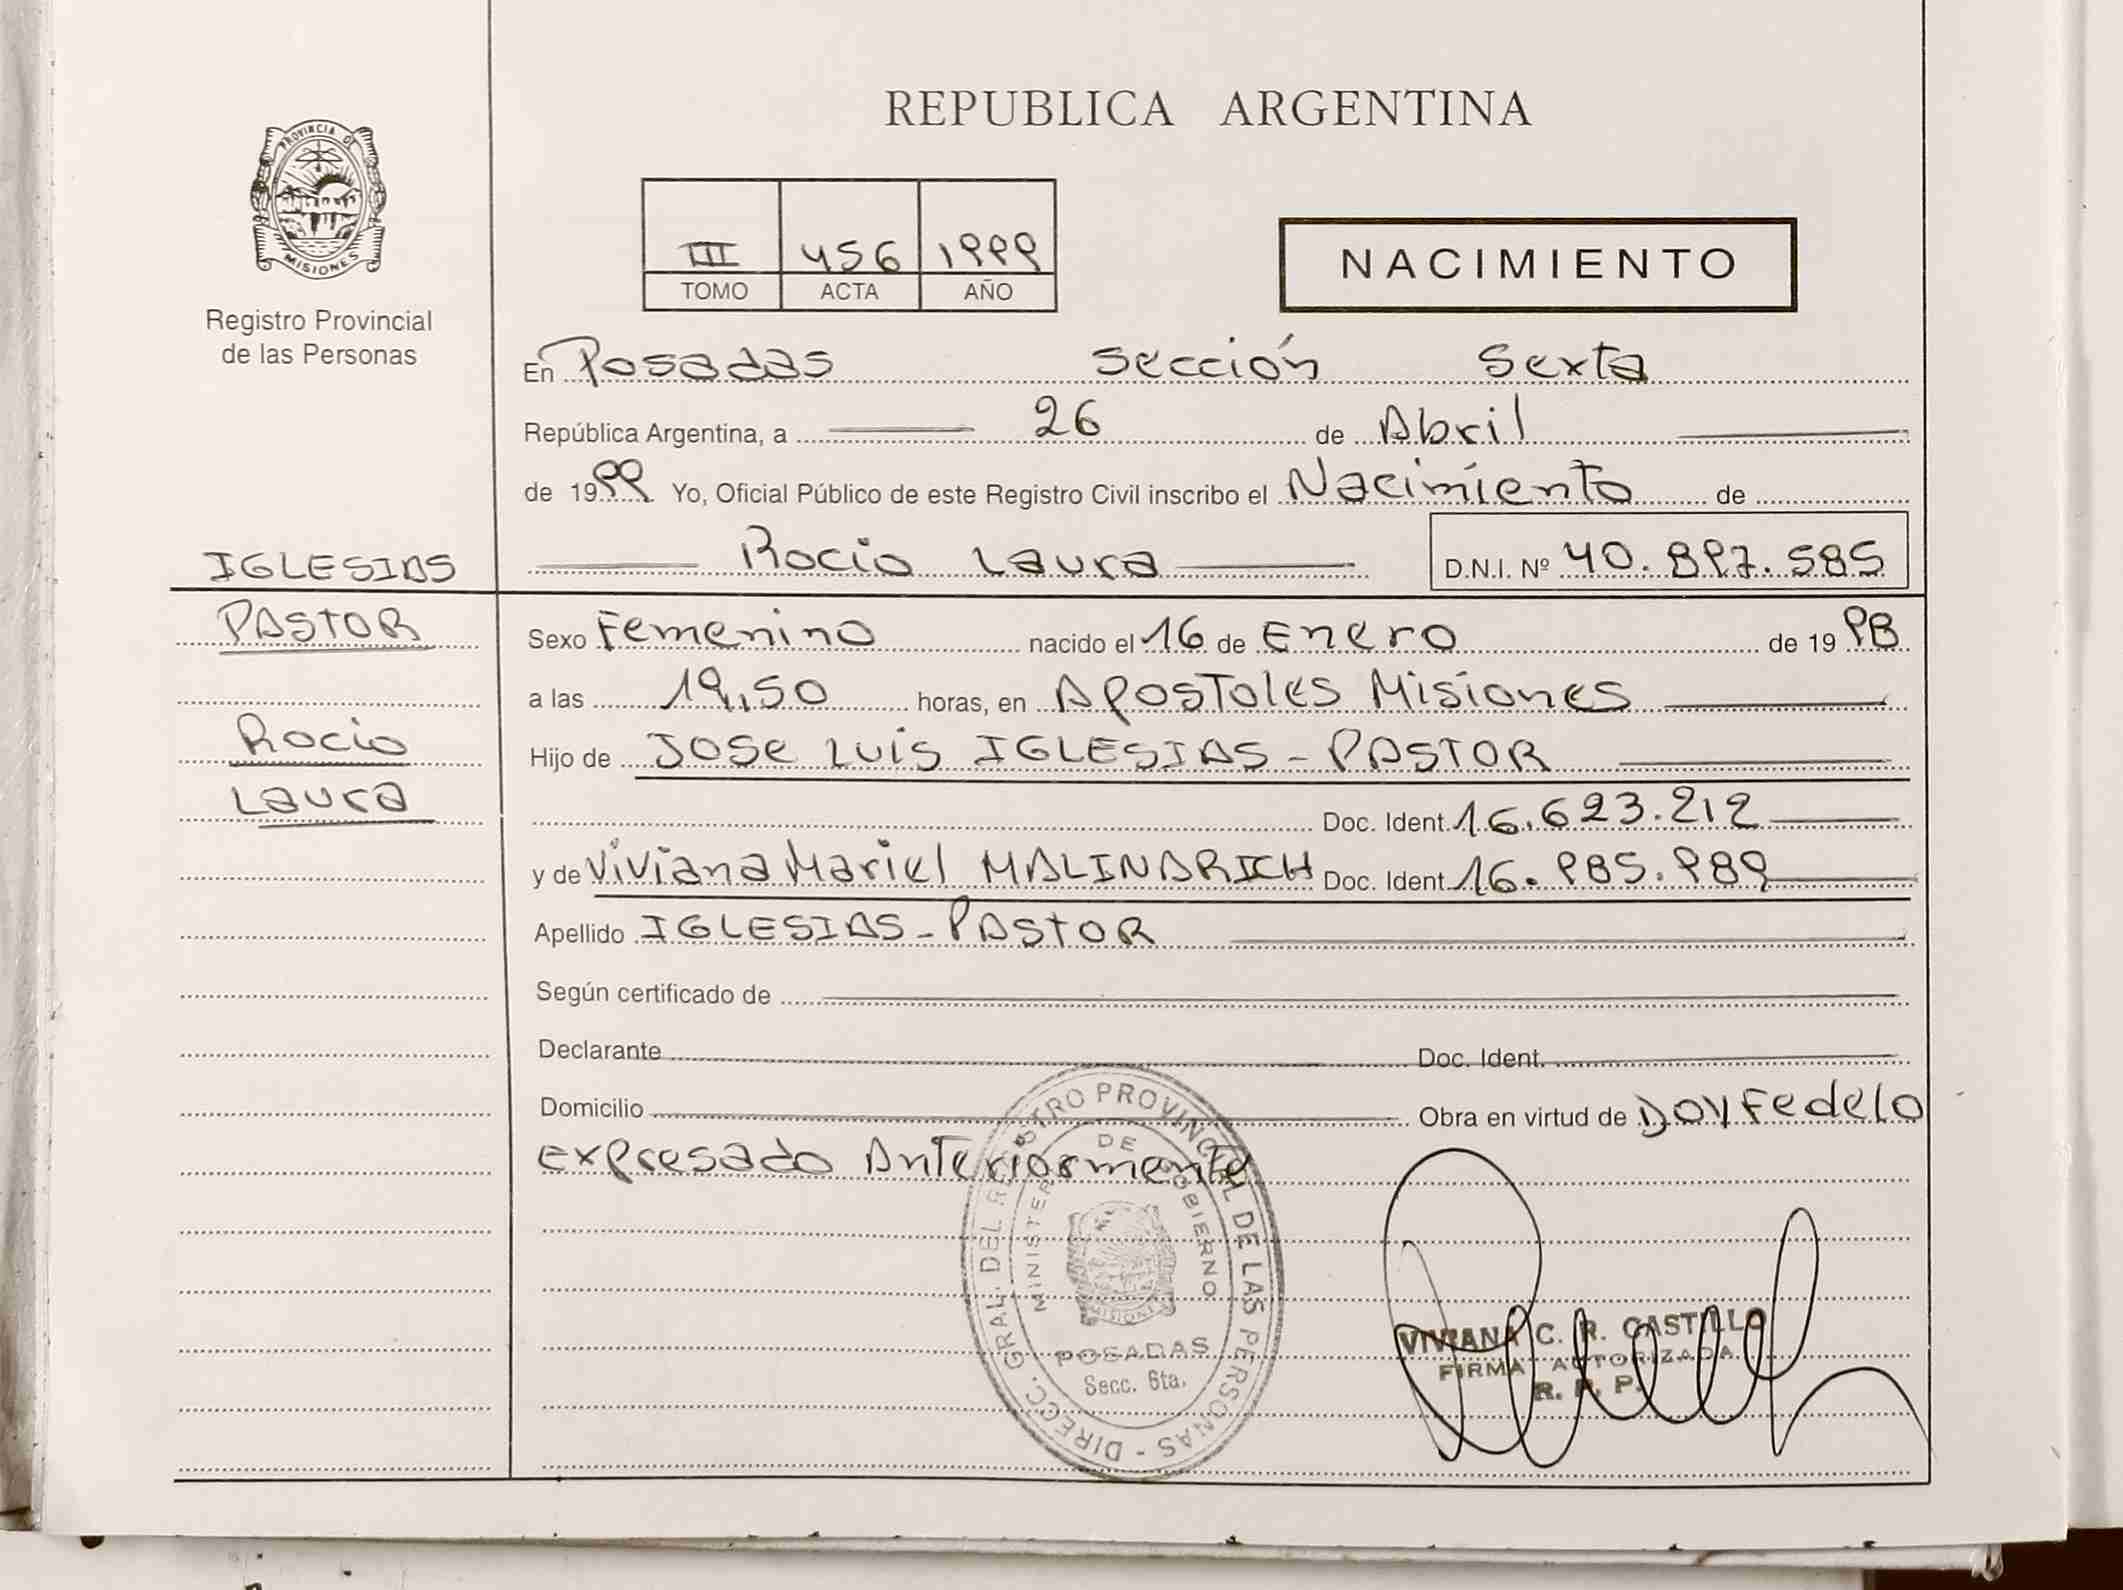 REPUBLICA ARGENTINA
PROVINCIA DE
MISIONES
Registro Provincial
de las Personas
III 456 1999
TOMO ACTA AÑO
NACIMIENTO
En Posadas Sección Sexta
República Argentina, a 26 de Abril
de 1999 Yo, Oficial Público de este Registro Civil inscribo el Nacimiento de
IGLESIAS
Rocio Laura D.N.I. Nº 40.897.585
PASTOR
Sexo Femenino nacido el 16 de Enero de 19 98
a las 19,50 horas, en Apostoles Misiones
Rocio
Hijo de Jose Luis IGLESIAS - PASTOR
Laura
Doc. Ident 16.623.212
y de Viviana Mariel MALINARICH Doc. Ident 16.985.989
Apellido IGLESIAS - PASTOR
Según certificado de
Declarante Doc. Ident.
Domicilio Obra en virtud de Doy Fe de lo
expresado Anteriormente
DIRECC. GRAL. DEL REGISTRO PROVINCIAL DE LAS PERSONAS -
MINISTERIO DE GOBIERNO
MISIONES
POSADAS
Secc. 6ta.
VIVIANA C. R. CASTILLO
FIRMA AUTORIZADA
R. P. P.